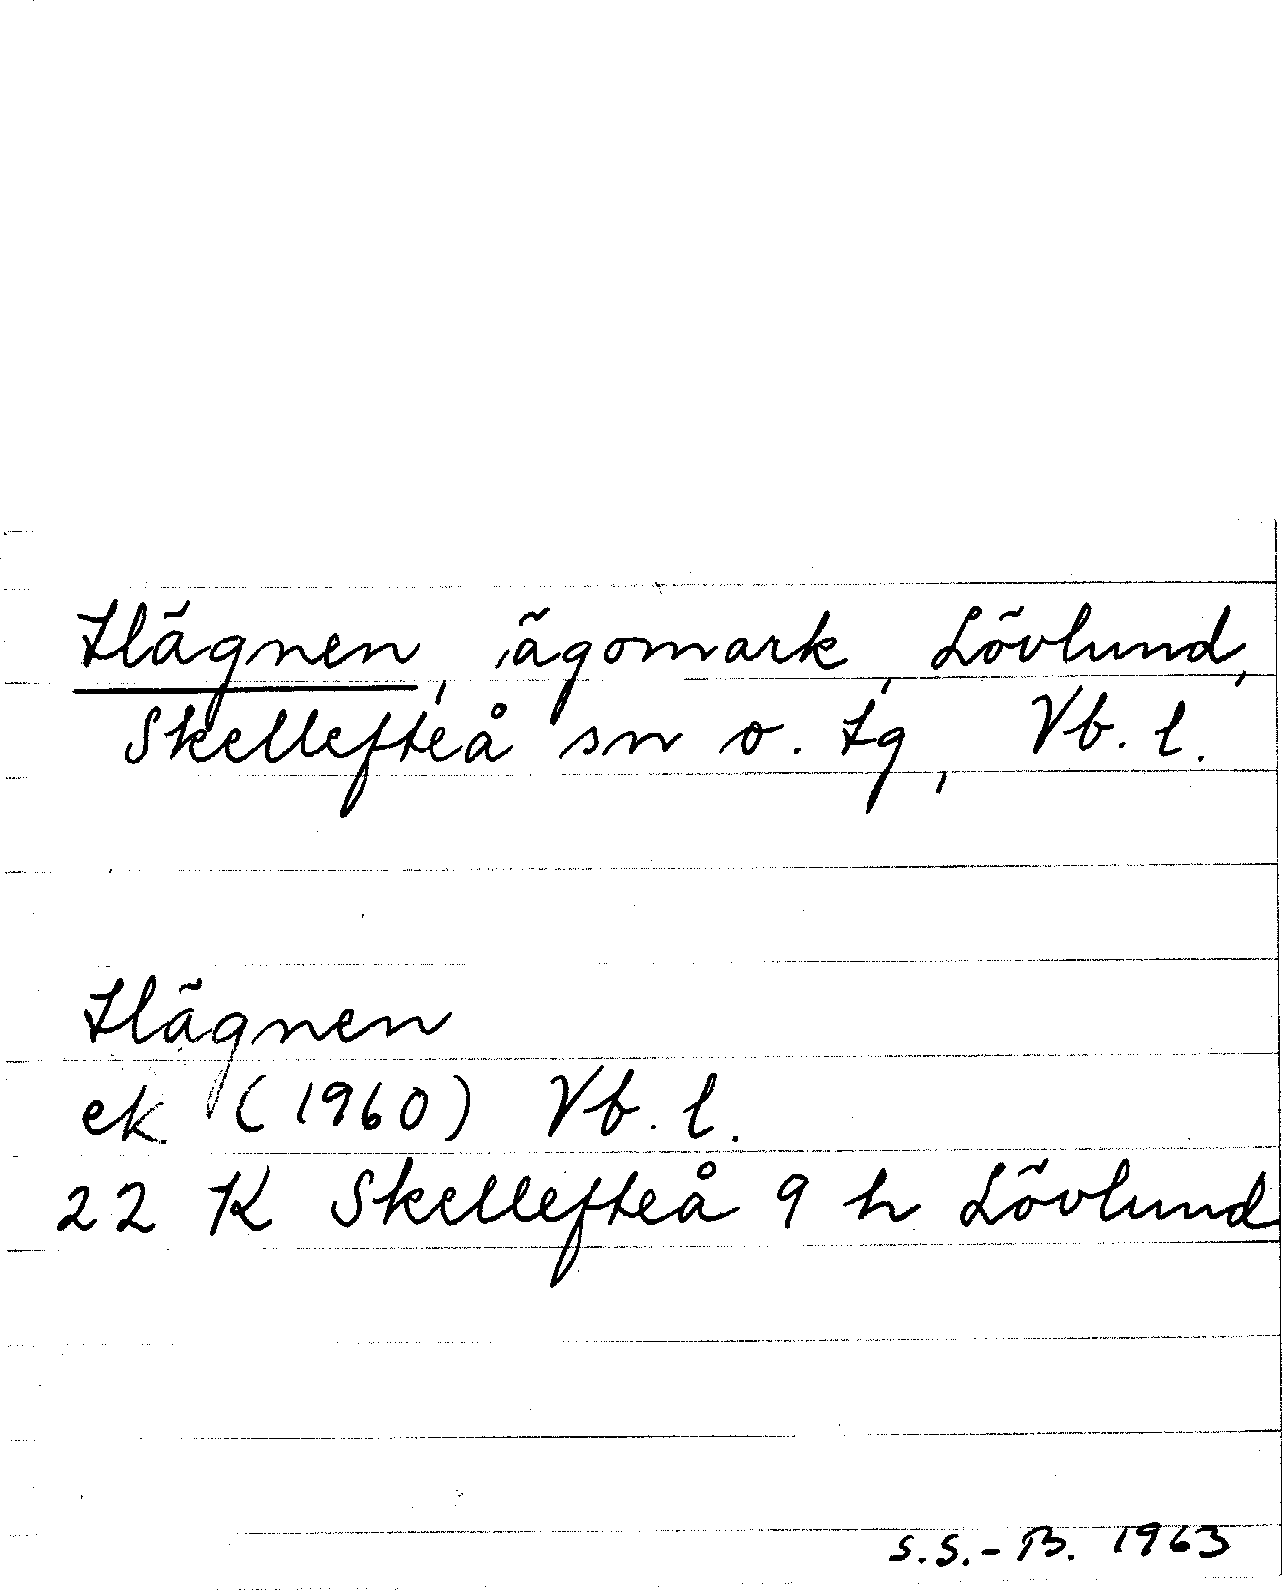 Hägnen, ägomark, Lövlund,
Skellefteå sn o. tg, Vb. l.
Hägnen
ek (1960) Vb. l.
22 K Skellefteå 9 h Lövlund
S.S.-B. 1963